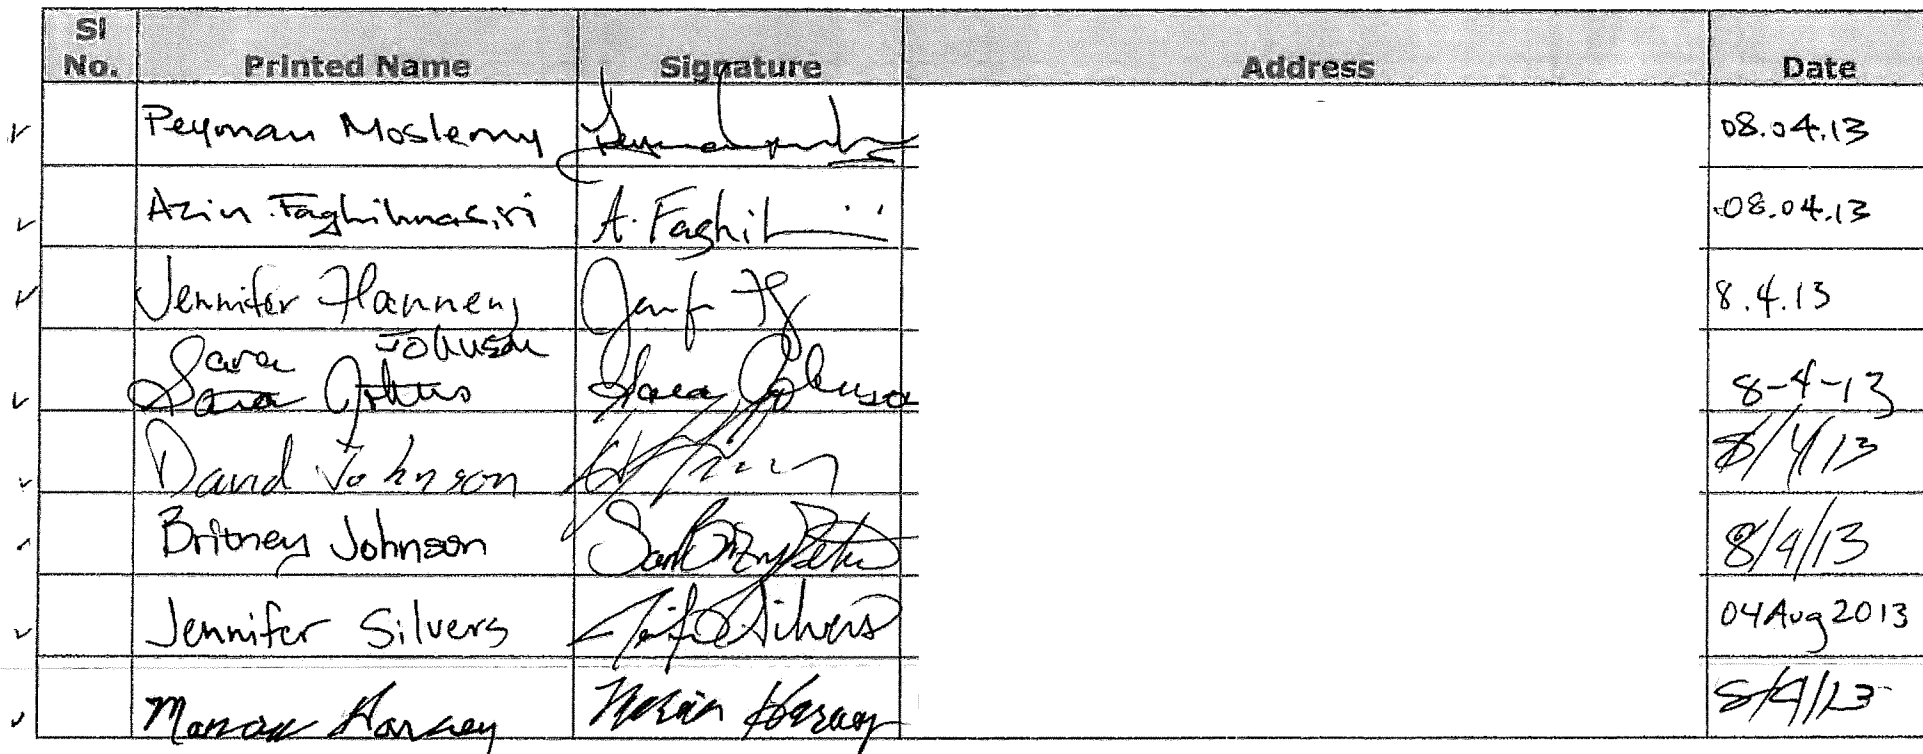 Sl No. Printed Name Signature Address Date
Peyman Moslemy 08.04.13
Azin Faghihnasiri A. Faghih 08.04.13
Jennifer Flannery 8.4.13
Sara Johnson
Sara Johns Sara Johnson 8-4-13
David Johnson 8/4/13
Britney Johnson 8/4/13
Jennifer Silvers Silvers 04 Aug 2013
Harvey Harvey 8/4/13